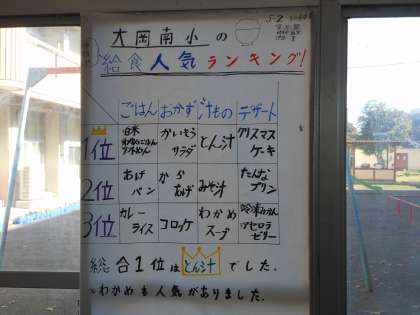 大岡南小の
給食人気ランキング!
ごはん おかず 汁もの デザート
1位 白米 わかめごはん ソフトめん かいそうサラダ とん汁 クリスマスケーキ
2位 あげパン からあげ みそ汁 たんなプリン
3位 カレーライス コロッケ わかめスープ 冷凍みかん アセロラゼリー
総合1位はとん汁でした。
わかめも人気がありました。